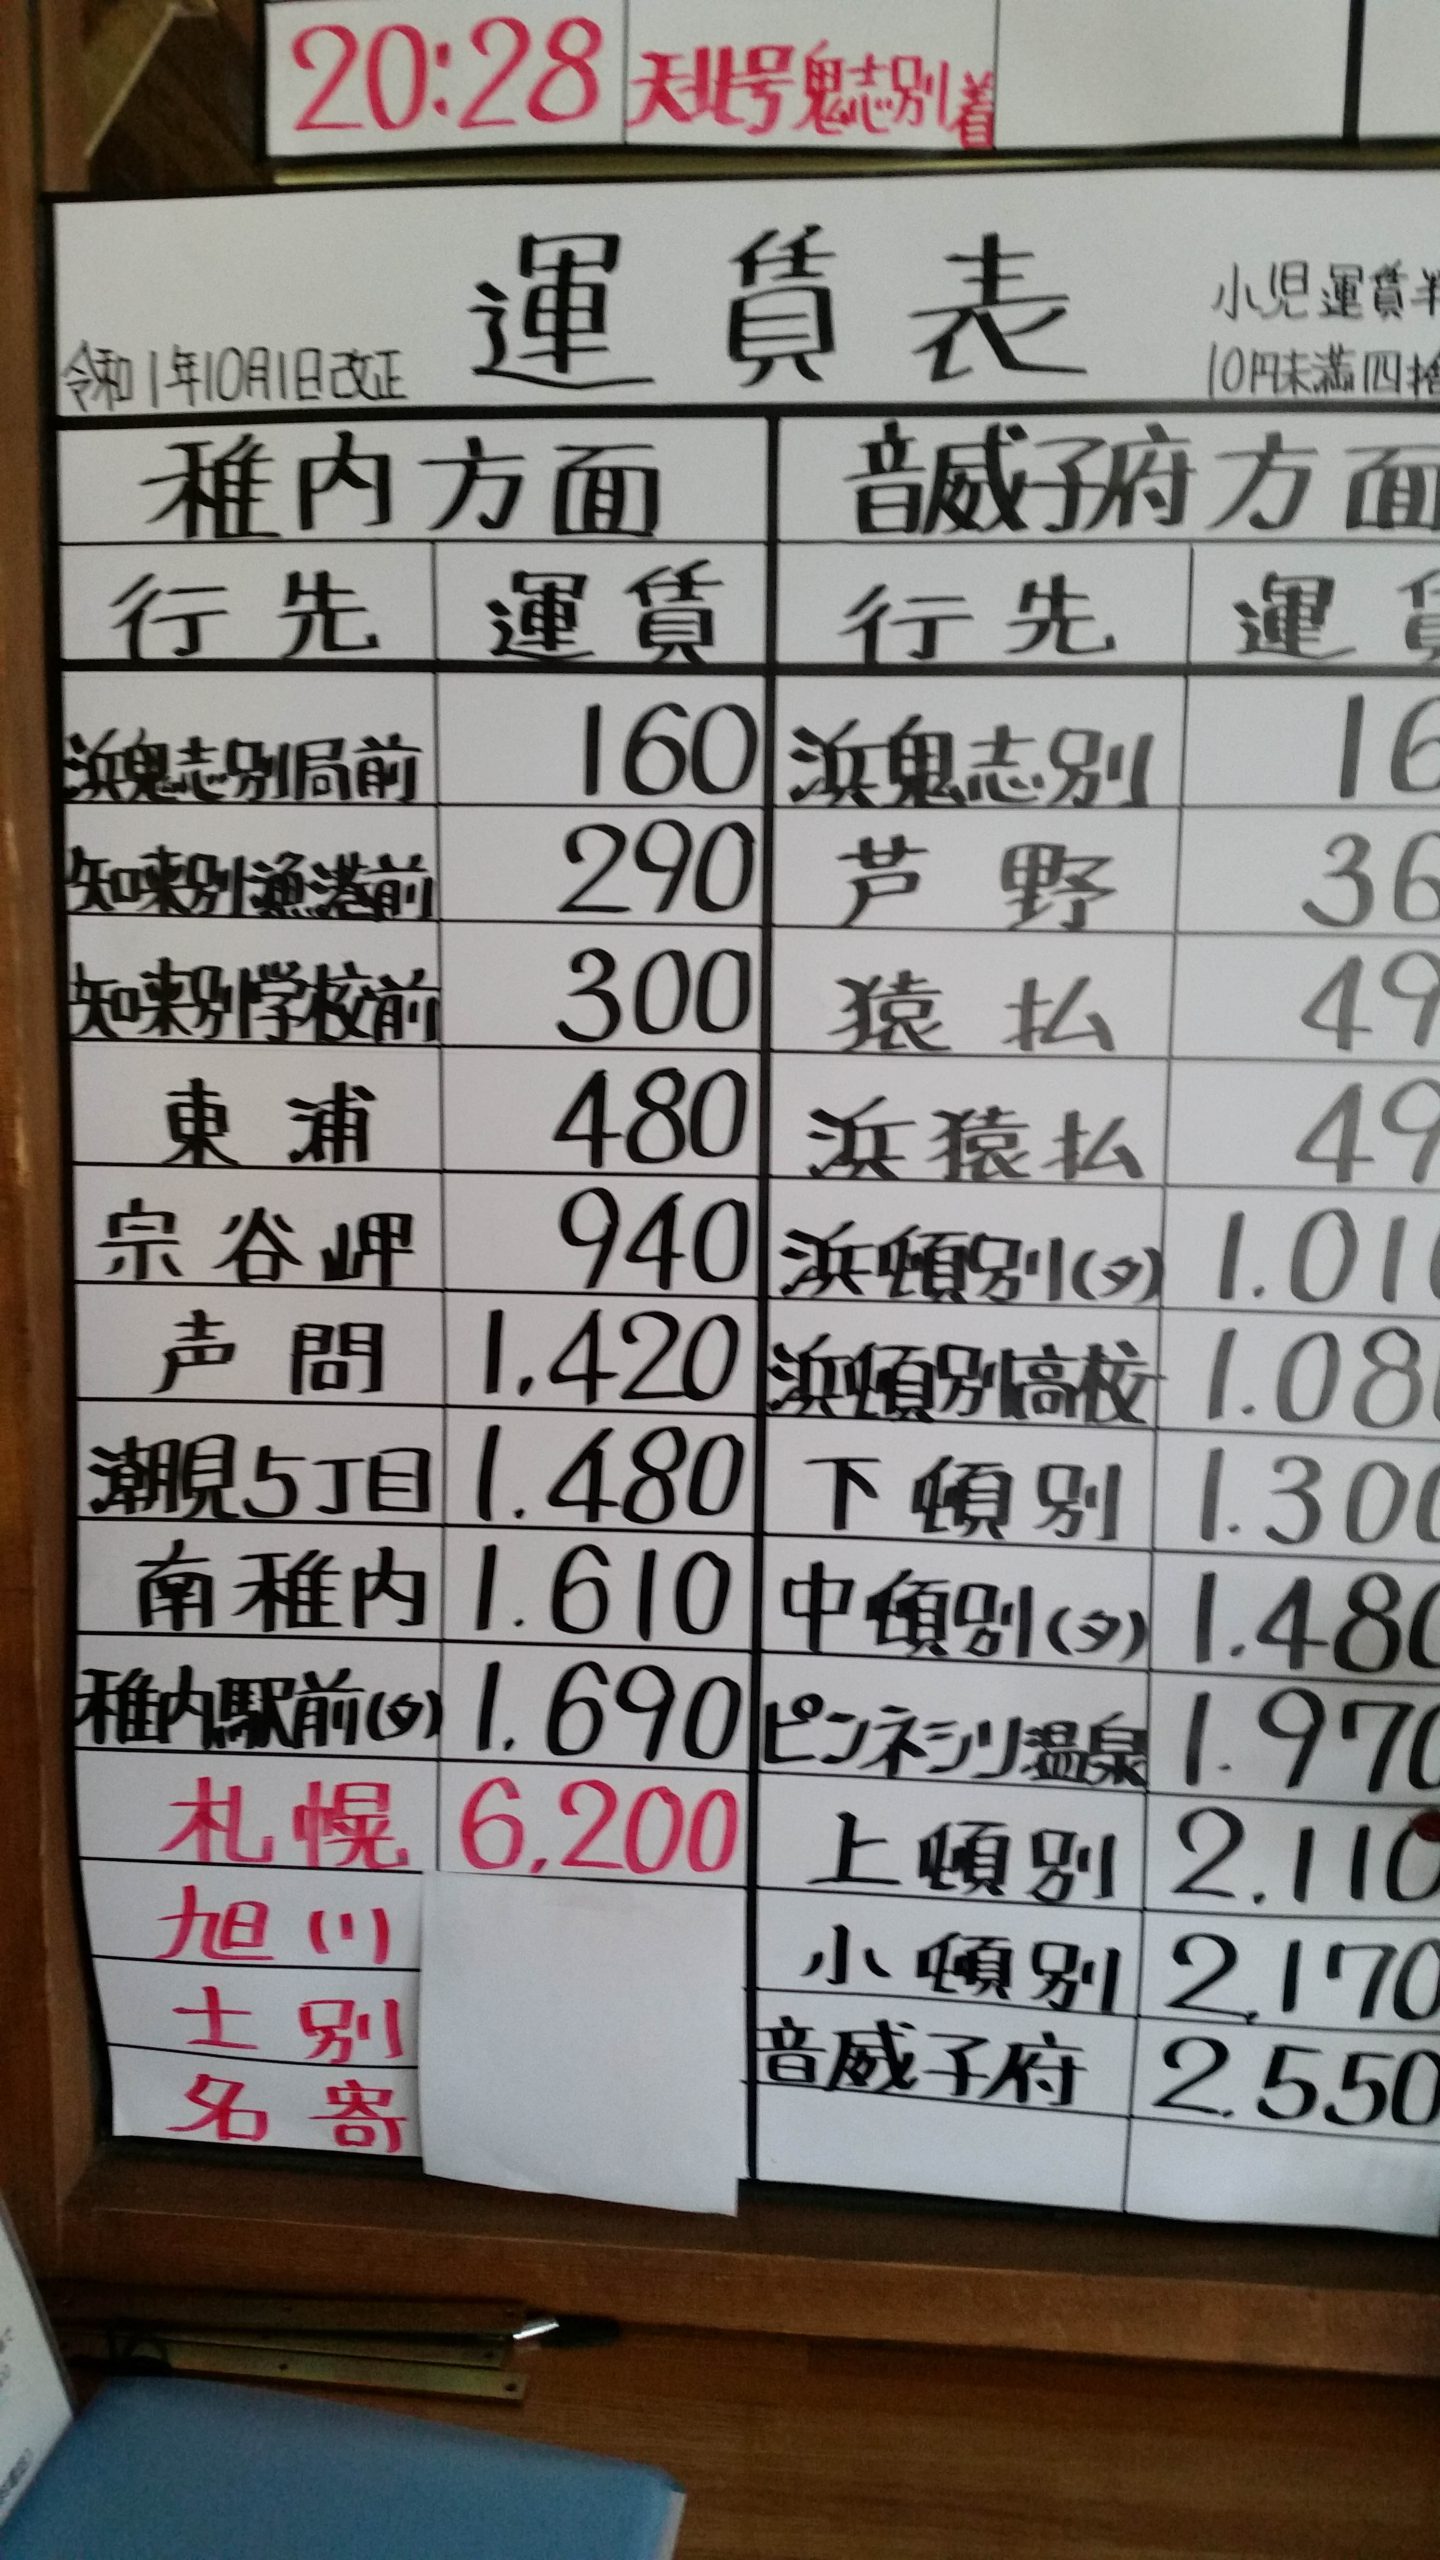 20:28 天北号鬼志別着
運賃表
小児運賃半
令和1年10月1日改正
10円未満四捨
稚内方面 音威子府方面
行先 運賃 行先 運賃
浜鬼志別局前 160 浜鬼志別 16
知来別漁港前 290 芦野 36
知来別学校前 300 猿払 49
東浦 480 浜猿払 49
宗谷岬 940 浜頓別(タ) 1.010
声問 1,420 浜頓別高校 1.080
潮見5丁目 1.480 下頓別 1.300
南稚内 1.610 中頓別(タ) 1.480
稚内駅前(タ) 1.690 ピンネシリ温泉 1.970
札幌 6,200 上頓別 2.110
旭川 小頓別 2.170
士別 音威子府 2.550
名寄